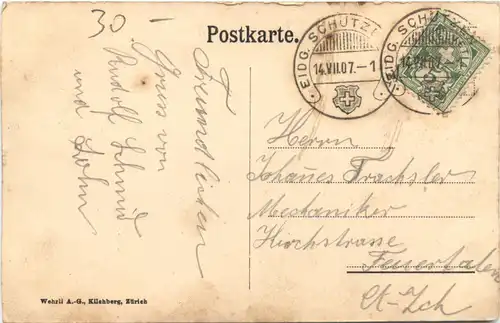 30 -
Postkarte.
EIDG. SCHÜTZ
14.VII.07.-1
EIDG. SCHÜTZ
14.VII.07
Freundlichen
Gruss von
Rudolf Schmid
und Sohn
Herrn
Johannes Trachsler
Mechaniker
Kirchstrasse
Feuertalen
Kt. Zch
Wehrli A.-G., Kilchberg, Zürich